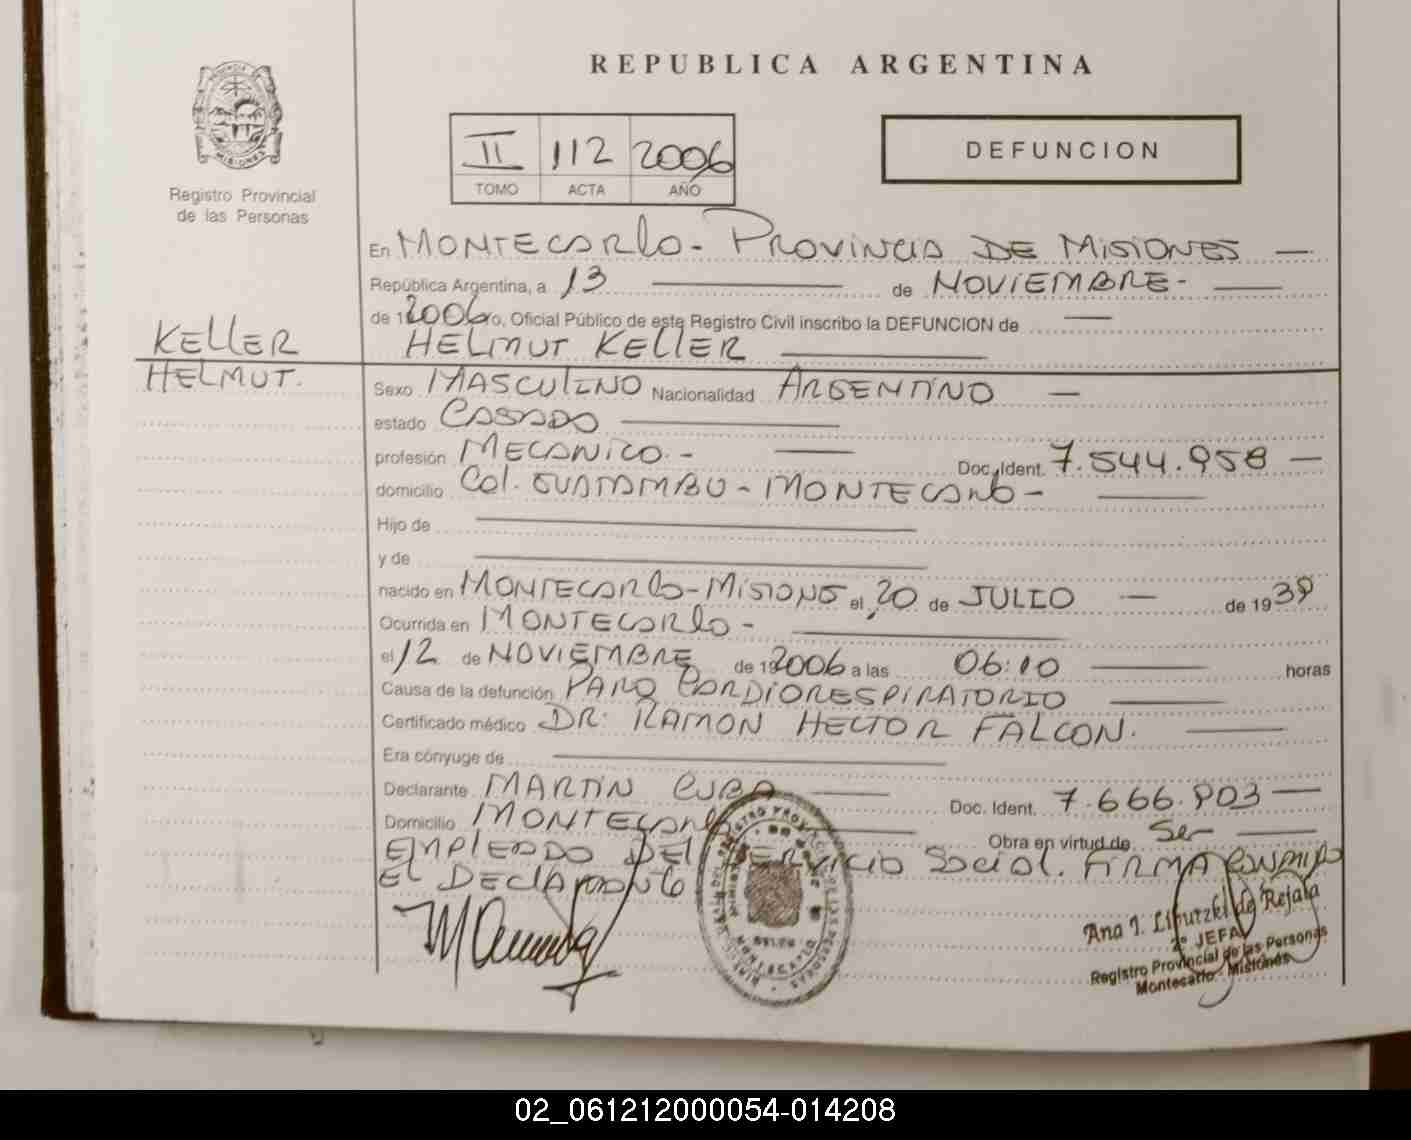 REPUBLICA ARGENTINA
PROVINCIA
MISIONES
Registro Provincial
de las Personas
II 112 2006
TOMO ACTA AÑO
DEFUNCION
En MONTECARLO - PROVINCIA DE MISIONES
República Argentina, a 13 de NOVIEMBRE -
de 2006 ro, Oficial Público de este Registro Civil inscribo la DEFUNCION de
HELMUT KELLER
KELLER
HELMUT.
Sexo MASCULINO Nacionalidad ARGENTINO
estado CASADO
profesión MECANICO. - Doc. Ident. 7.544.958
domicilio Col. GUATAMBU - MONTECARLO -
Hijo de
y de
nacido en MONTECARLO - MISIONES el, 20 de JULIO de 1939
Ocurrida en MONTECARLO -
el 12 de NOVIEMBRE de 2006 a las 06:10 horas
Causa de la defunción PARO CARDIORESPIRATORIO
Certificado médico DR: RAMON HECTOR FALCON.
Era cónyuge de
Declarante MARTIN Doc. Ident. 7.666.903
Domicilio MONTECARLO Obra en virtud de Ser
EMPLEADO DEL SERVICIO Social. FIRMA CONMIGO
EL DECLARANTE
MONTECARLO
Ana I. de Rejala
2° JEFA
Registro Provincial de las Personas
Montecarlo - Misiones
02_061212000054-014208